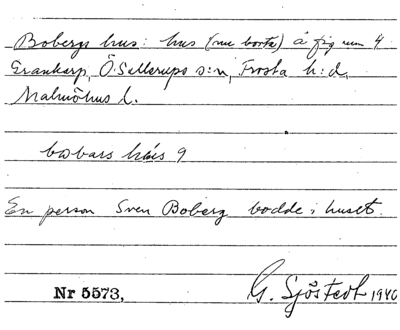 Bobergs hus: hus (nu borta) å fig num 4
Grankarp, Ö. Sallerups s:n, Frosta h:d,
Malmöhus l.
bobars hus 9
En person Sven Boberg bodde i huset.
Nr 5573, G. Sjöstedt 1940